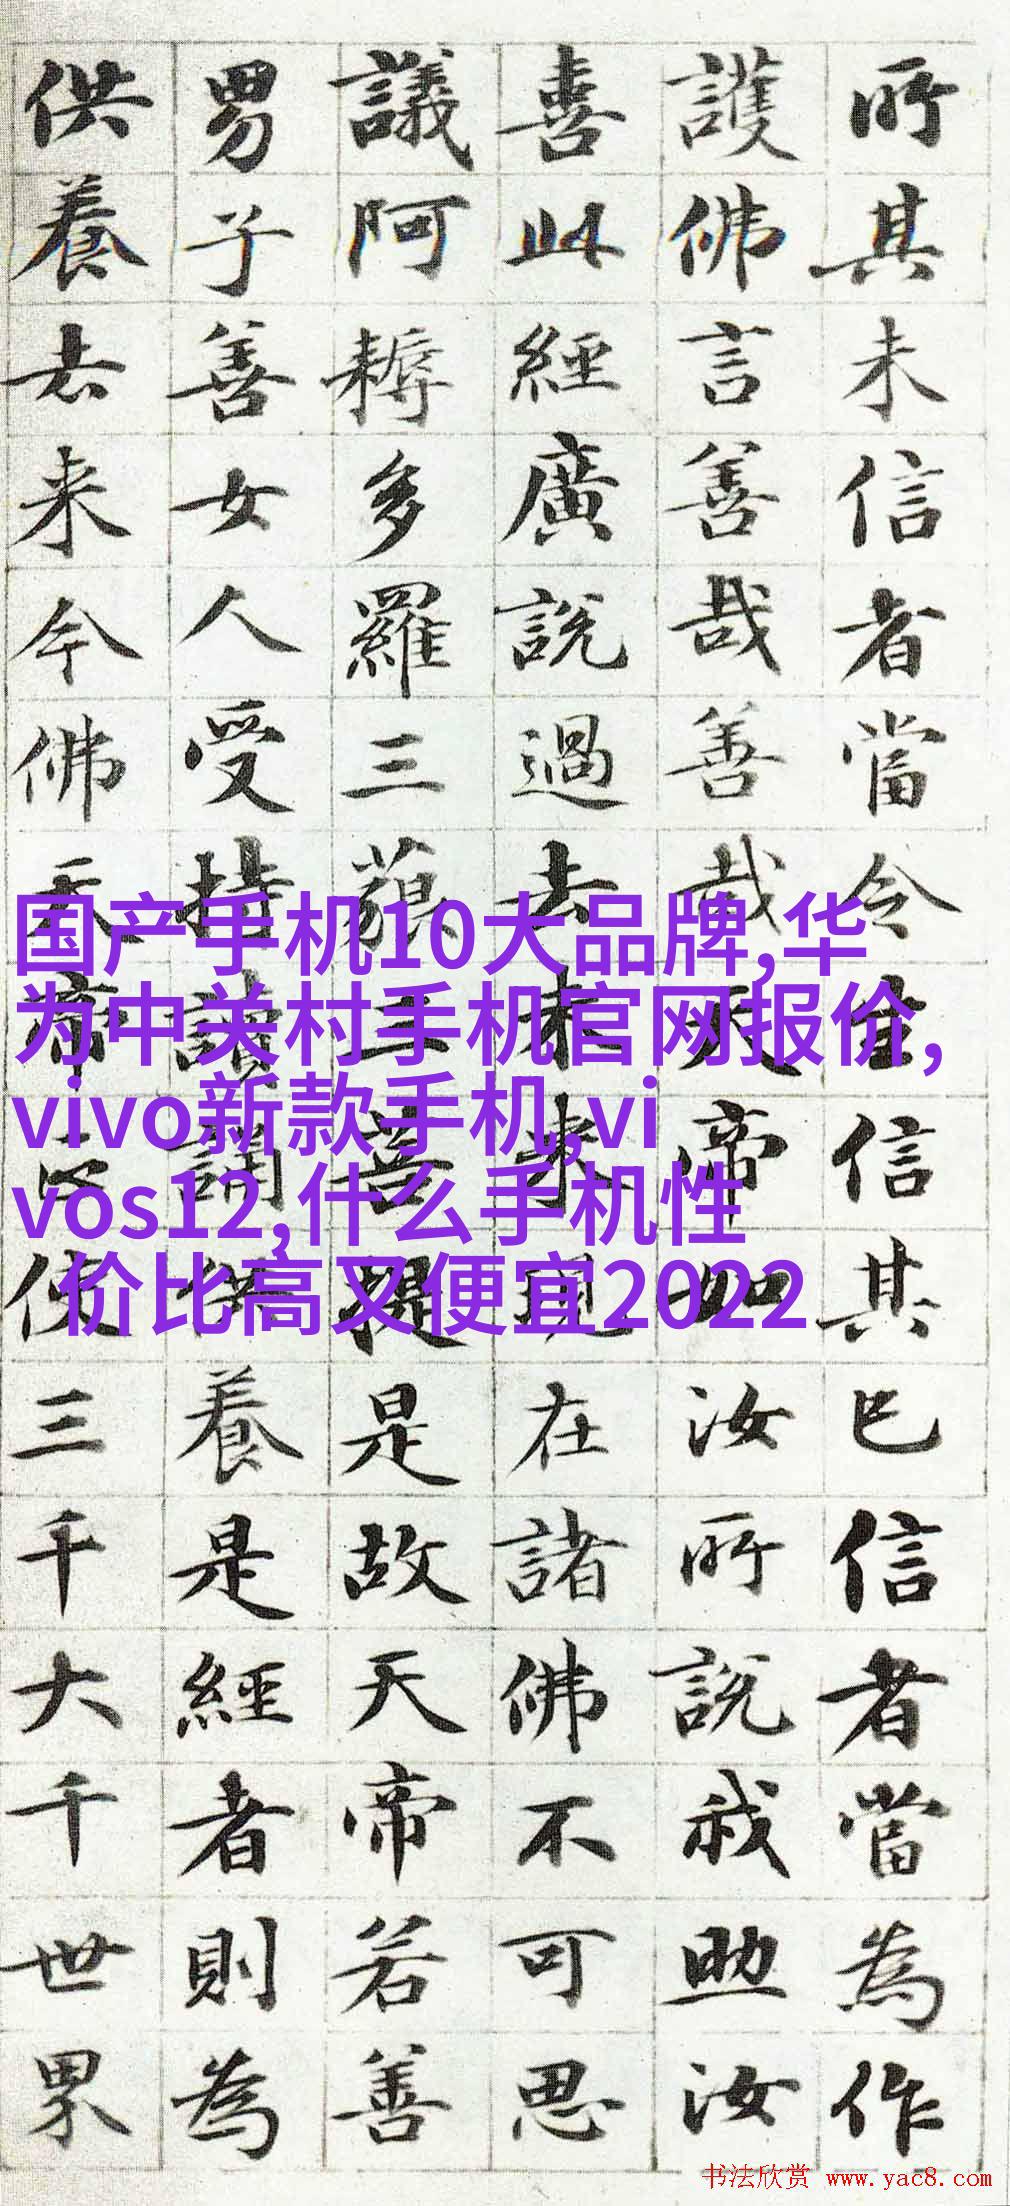 所其未信者當令生信其已信者當為作
護佛言善哉善哉天帝如汝所說我助汝
喜此經廣說過去未来現在諸佛不可思
議阿耨多羅三藐三菩提是故天帝若善
男子善女人受持讀誦供養是經者則為
供養去来今佛天帝正使三千大千世界
国产手机10大品牌,华
为中关村手机官网报价,
vivo新款手机,vi
vos12,什么手机性
价比高又便宜2022
书法欣赏 www.yac8.com